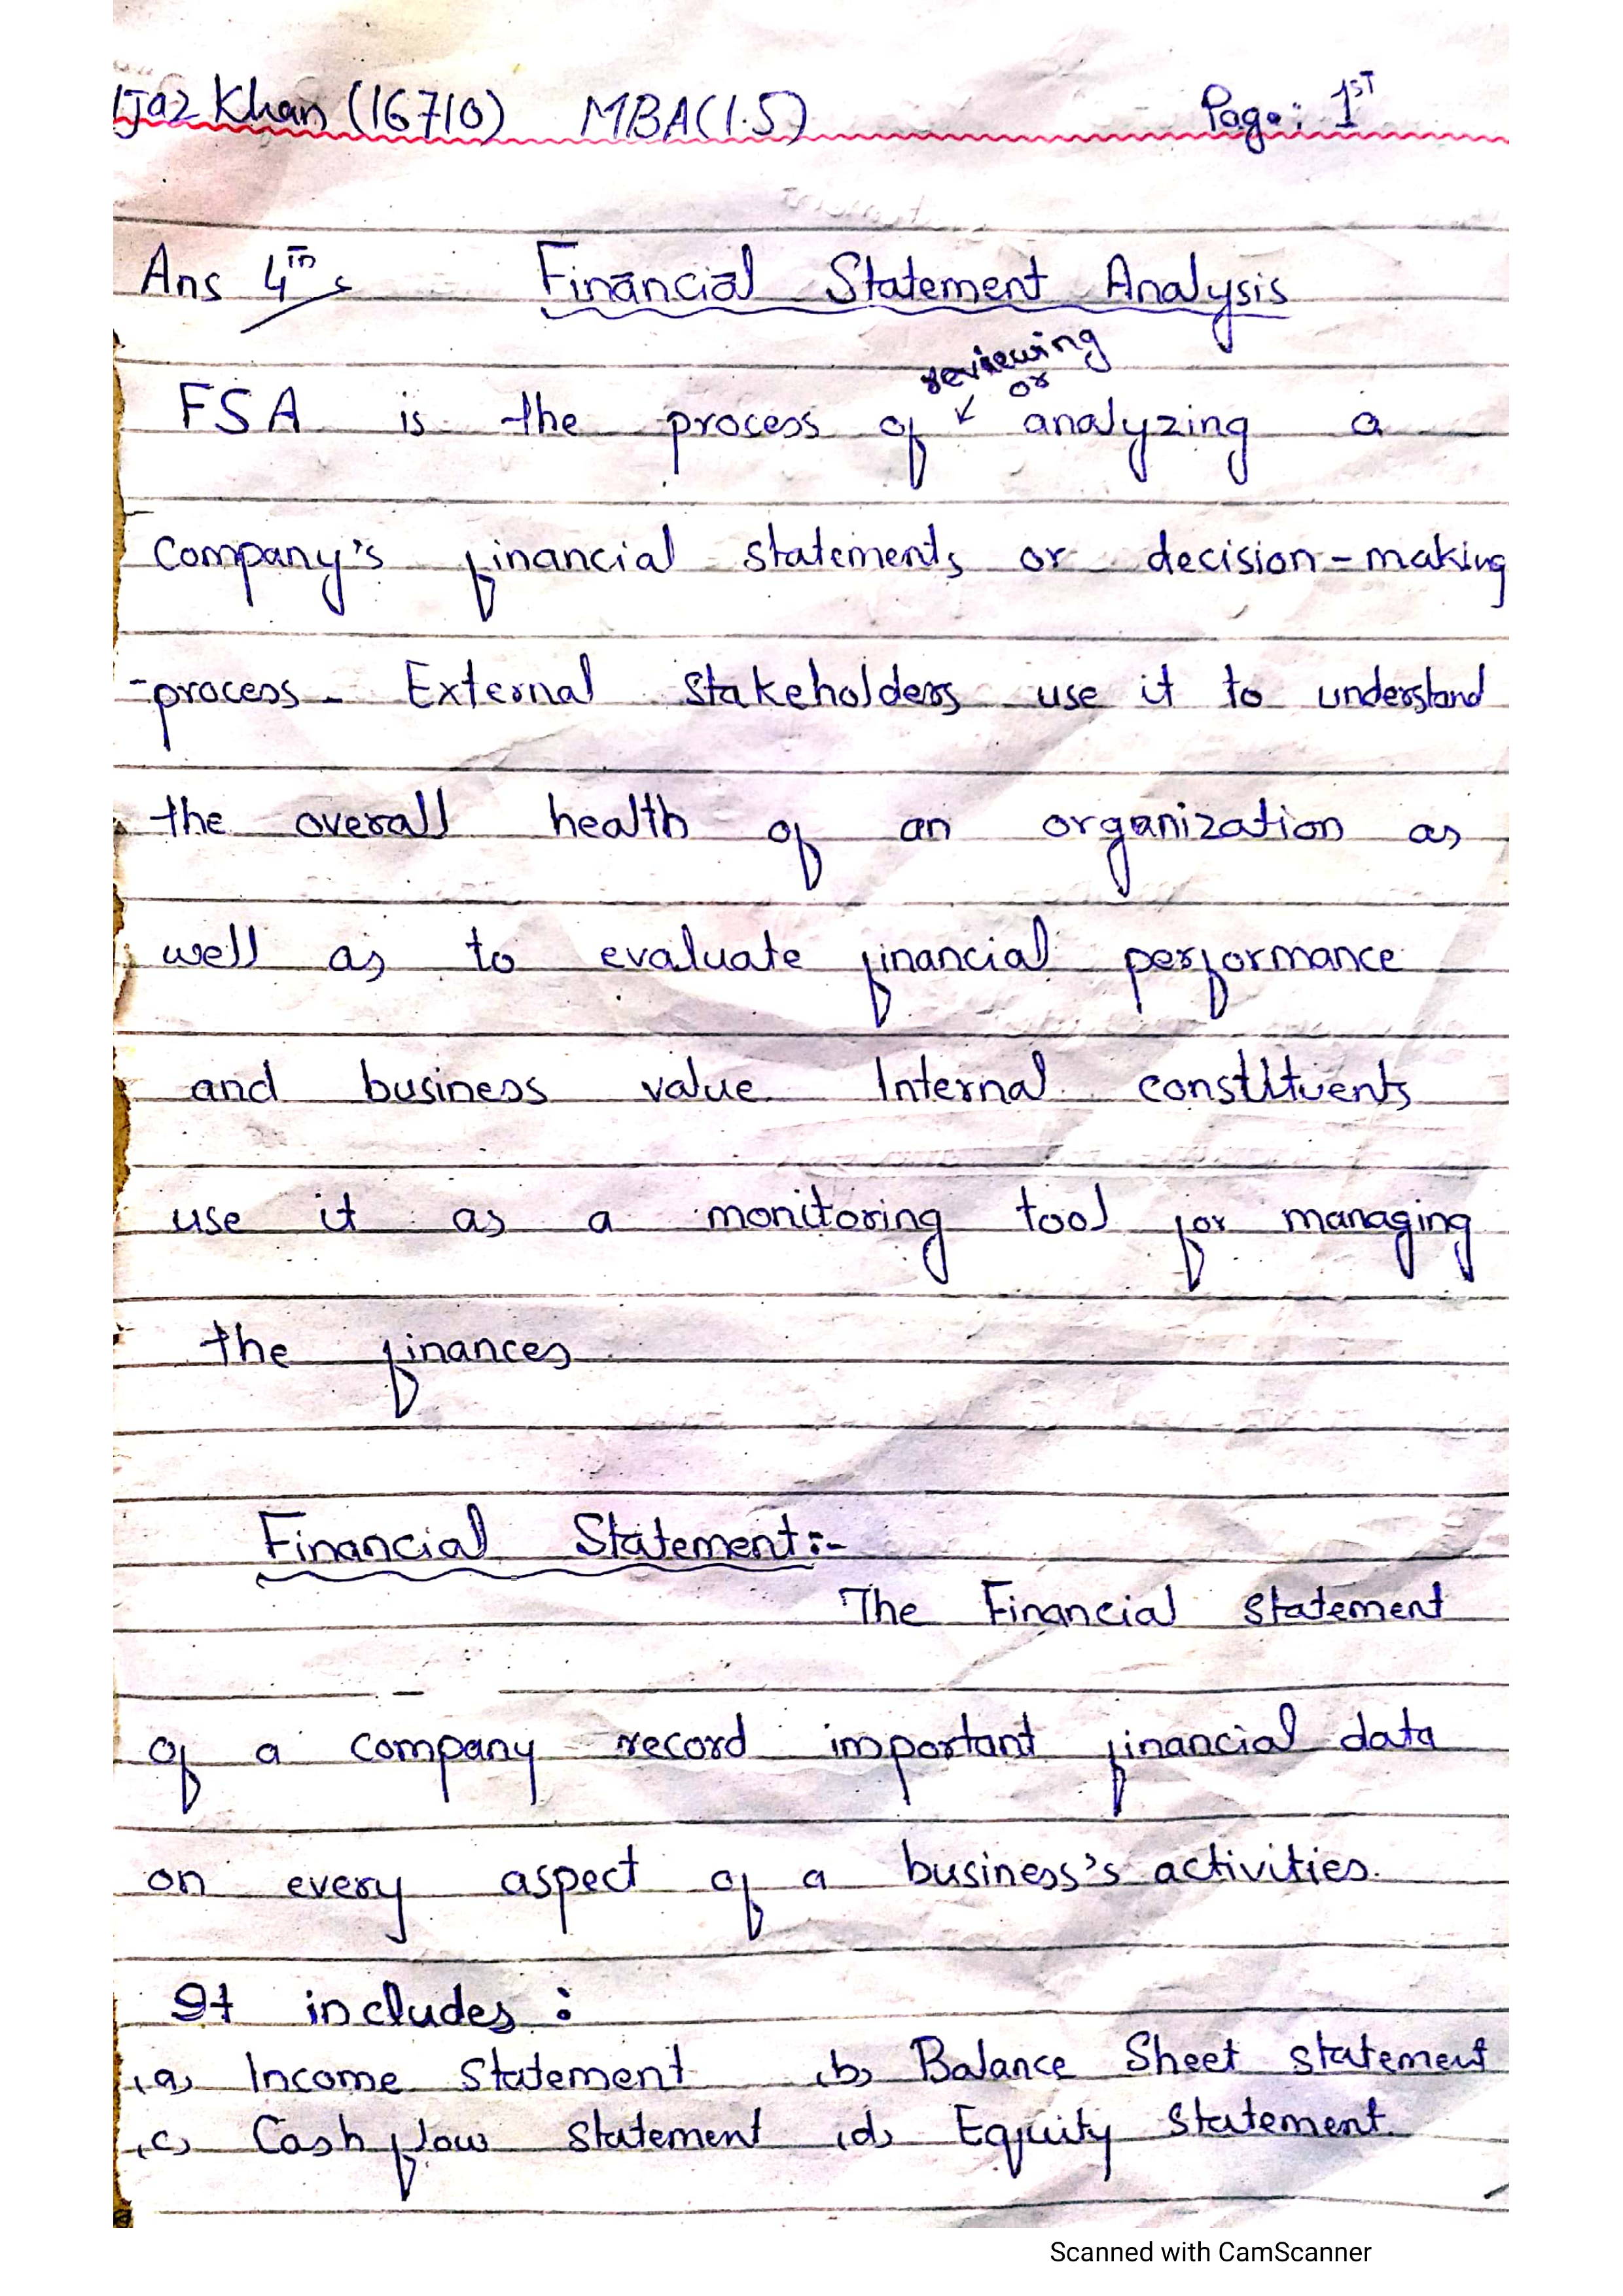 Ijaz Khan (16710) MBA(1.5) Page: 1ST
Ans 4th Financial Statement Analysis
reviewing
or
FSA is the process of analyzing a
Company's financial statements or decision-making
-process- External stakeholders use it to understand
the overall health of an organization as
well as to evaluate financial performance
and business value. Internal constituents
use it as a monitoring tool for managing
the finances
Financial Statement:-
The Financial statement
of a company record important financial data
on every aspect of a business's activities.
It includes :
(a) Income statement (b) Balance Sheet statement
(c) Cash flow statement (d) Equity statement.
Scanned with CamScanner